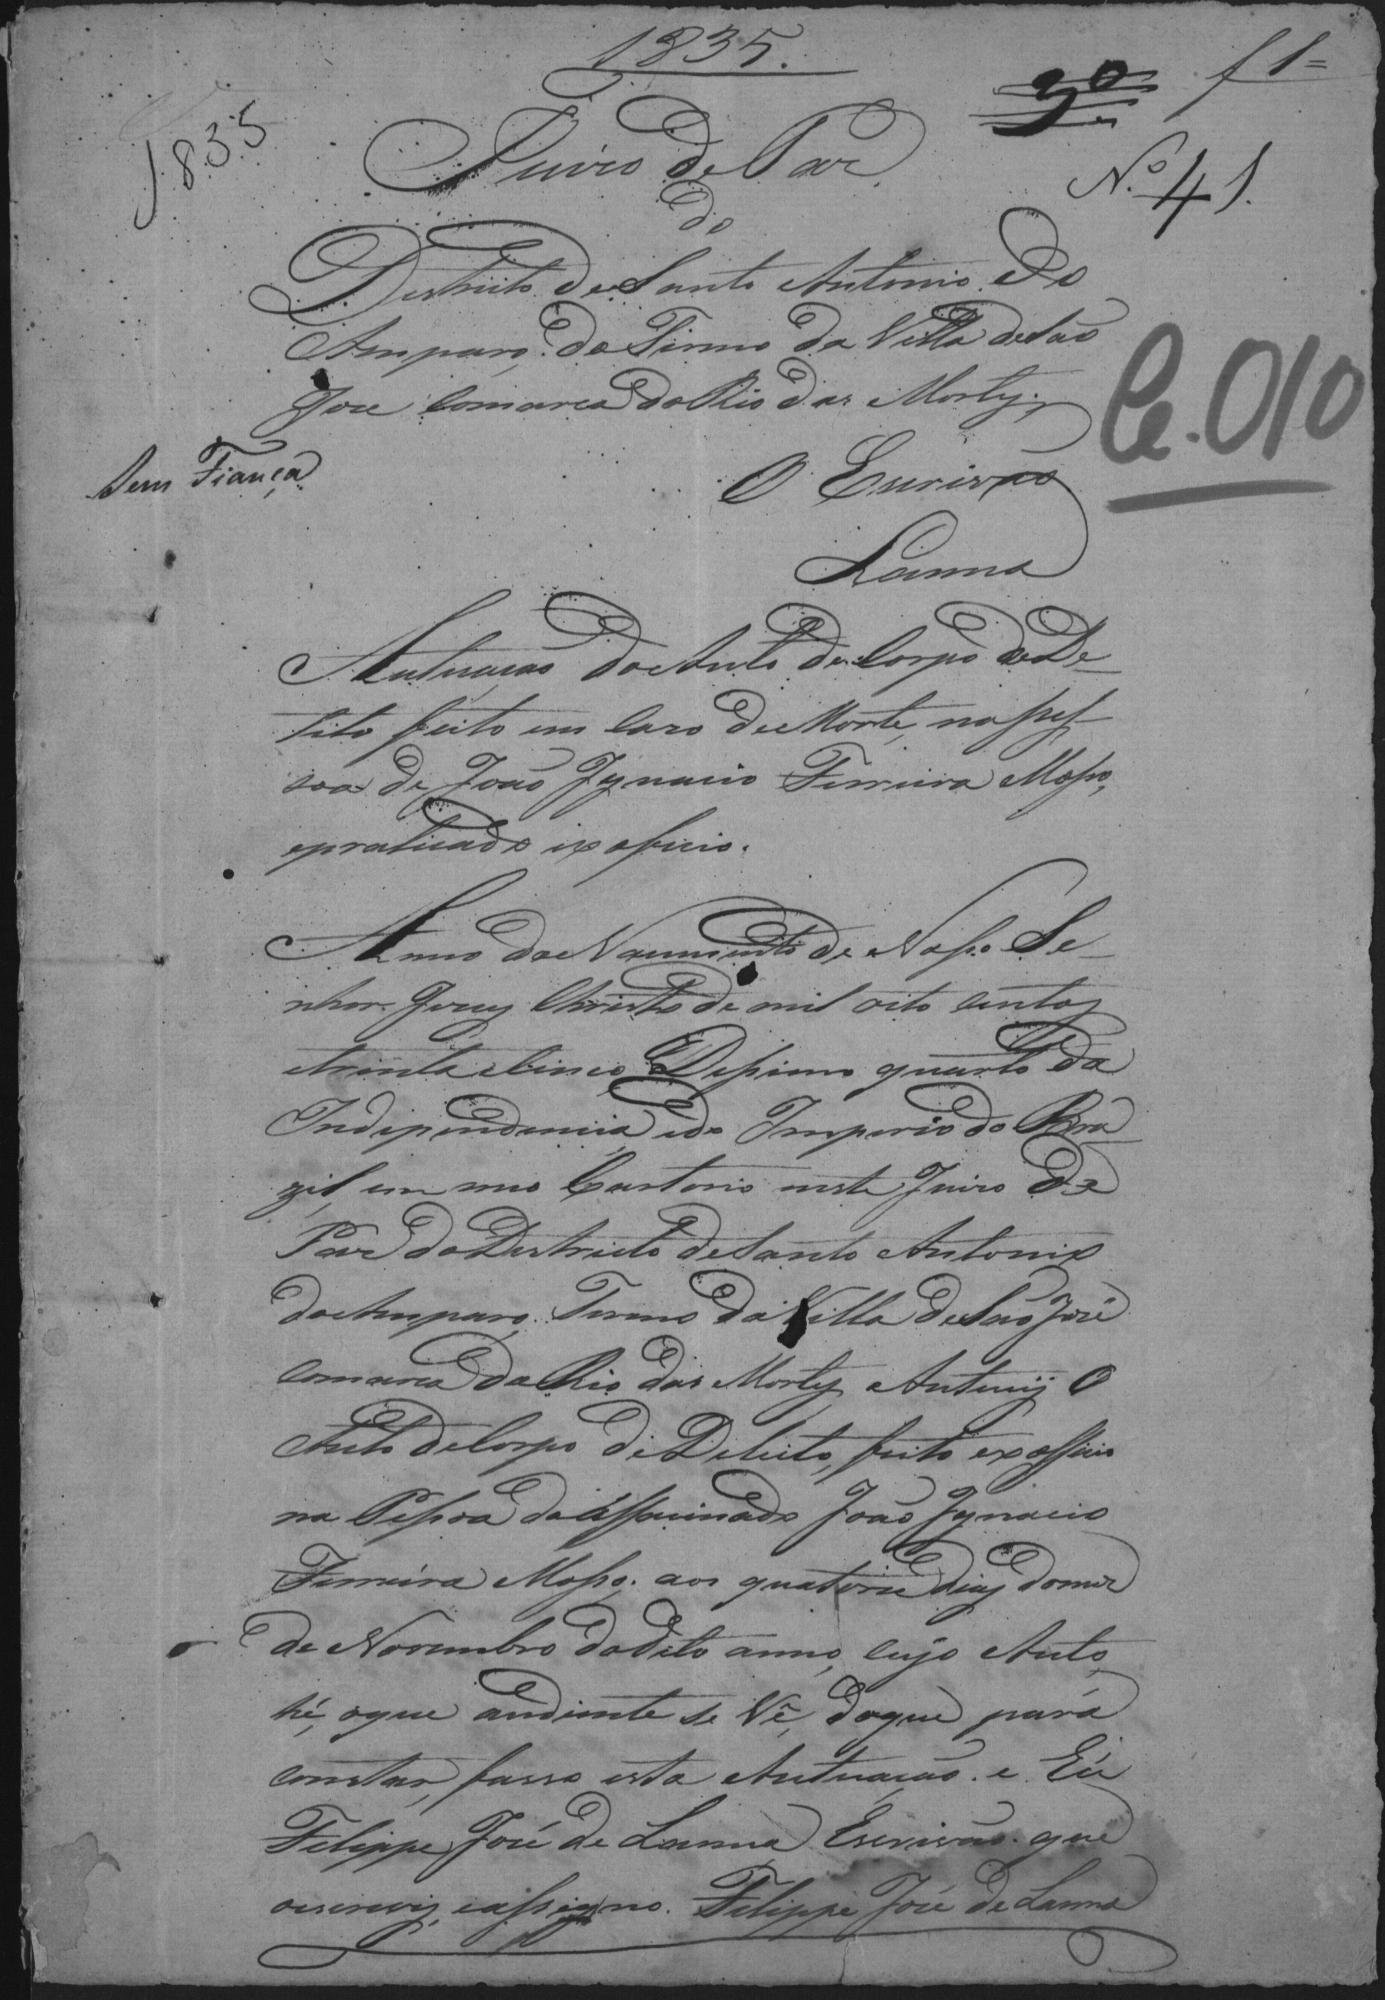 1835.
f 1=
30
1835
Nº 41.
Juiso de Paz
do
Destricto de Santo Antonio do
Amparo, do Termo da Villa de São
Jose Comarca do Rio das Mortes
Ce. 010
Sem Fiança
O Escrivão
Lanna
Autuacão do Auto de Corpo de De-
lito feito em Cazo de Morte, na pes-
soa de João Ignacio Ferreira MoSso,
epraticado ex oficio.
Anno do Nacimento de NoSso Se-
nhor Jesus Christo de mil oito centos
etrinta e cinco, DeSsimo quarto da
Independencia, edo Imperio do Bra
zil, em meo Cartorio neste Juiso de
Paz do Destricto de Santo Antonio
do Amparo, Termo da Villa de São José
Comarca do Rio das Mortes, Autuey O
Auto de Corpo de Delicto, feito exofficio
na PeSsoa do ASsacinado João Ignacio
Ferreira MoSso, aos quatorze dias do mez
de Novembro do dito anno, cujo Auto
hé, oque andiente se Vê, do que para
constar, fasso esta Autuacão. e Eu
Filippe José de Lanna Escrivão que
oescrevy, eaSsigno. Filippe José de Lanna